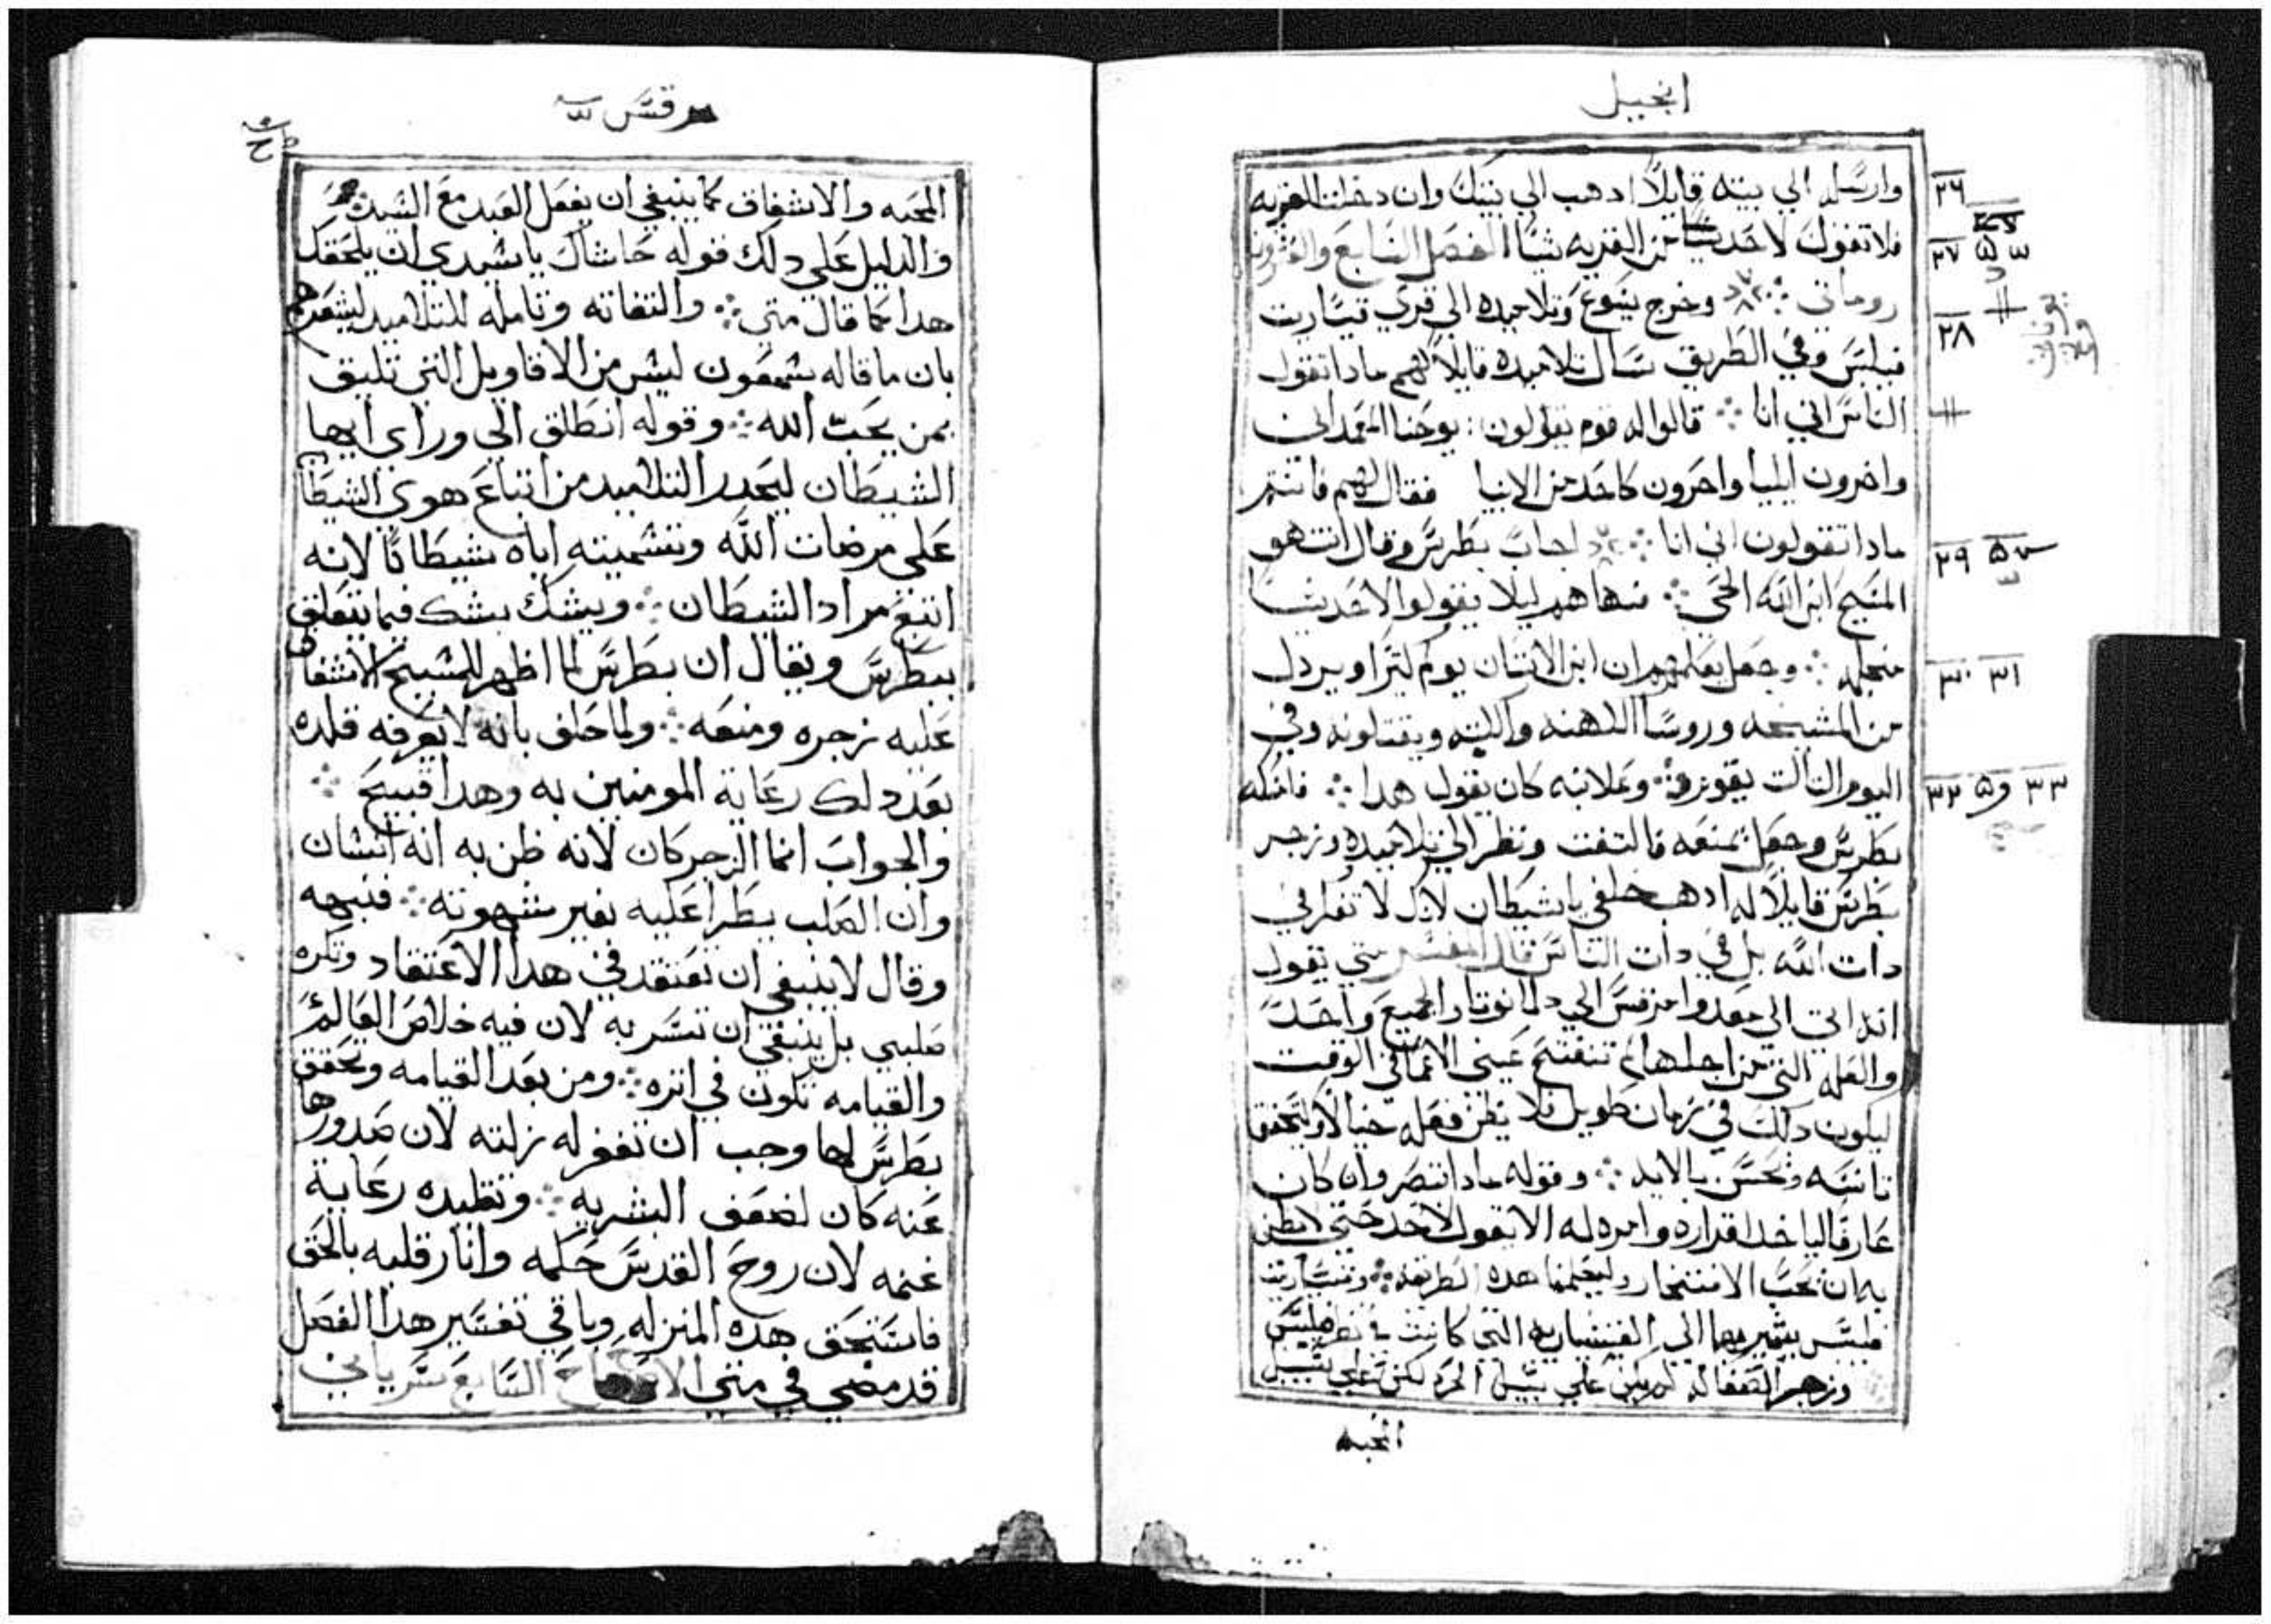 انجيل
وارسله الي بيته قايلا ادهب الي بيتك وان دخلت القريه
فلا تقول لاحد من القريه شيا الفصل السابع والعشرون
روماني وخرج يسوع وتلاميده الي قري قيسارية
فيلبس وفي الطريق سال تلاميده قايلا لهم مادا تقول
الناس اني انا قالوا له قوم يقولون يوحنا المعمدان
واخرون ايليا واخرون كاحد من الانبيا فقال لهم فانتم
مادا تقولون اني انا اجاب بطرس وقال انت هو
المسيح ابن الله الحي فنهاهم ليلا يقولوا لاحد شيا
منجله وجعل يعلمهم ان ابن الانسان يولم كثيرا ويردل
من المشيخه وروسا الكهنه والكتبه ويقتلونه وفي
اليوم التالت يقوم وعلانيه كان يقول هدا فامسكه
بطرس وجعل يمنعه فالتفت ونظر الي تلاميده وزجر
بطرس قايلا له ادهب خلفي يا شيطان لانك لا تفكر في
دات الله بل في دات الناس قال المفسر متي يقول
انه اتي الي مغدوا ومرقس الي دلمانوتا والجميع واحد
والعله التي من اجلها لم تنفتح عيني الاعما في الوقت
ليكون دلك في زمان طويل فلا يظن فعله خيالا وليتحقق
تانسه وتجسس بالايد وقوله مادا تبصر وان كان
عارفا ليا خد اقراره وامره له الا يقول لاحد حتي لا يظن
به انه يحب الافتخار وليعلمنا هده الطريقه وقيسارية
فيلبس يشير بها الي القيساريه التي كانت
وزجر الصفا له لم يكن علي سبيل الحرد لكن علي سبيل
المحبه
مرقس
المحبه والاشفاق كما ينبغي ان يفعل العبد مع السيد
والدليل علي دلك قوله حاشاك يا سيدي ان يلحقك
هدا كما قال متي والتفاته وتامله للتلاميد ليشعرهم
بان ما قاله شمعون ليس من الاقاويل التي تليق
بمن يحب الله وقوله انطلق الي وراي ايها
الشيطان ليحدر التلاميد من اتباع هوي الشيطان
علي مرضات الله وتسميته اياه شيطانا لانه
اتبع مراد الشيطان ويشك بشك فيما يتعلق
ببطرس ويقال ان بطرس لما اظهر للمسيح الاشفاق
عليه زجره ومنعه ولما حلف بانه لا يعرفه قلده
بعد دلك رعاية المومنين به وهدا قبيح
والجواب انما الزجر كان لانه ظن به انه انسان
وان الصلب يطرا عليه بغير شهوته فنبهه
وقال لا ينبغي ان تعتقد في هدا الاعتقاد وتكره
صلبي بل ينبغي ان تسر به لان فيه خلاص العالم
والقيامه تكون في اتره ومن بعد القيامه وتحقق
بطرس لها وجب ان تغفر له زلته لان صدورها
عنه كان لضعف البشريه وتقليده رعاية
غنمه لان روح القدس حكمه وانار قلبه بالحق
فاستحق هده المنزله وباقي تفسير هدا الفصل
قد مضي في متي الاصحاح السابع سرياني